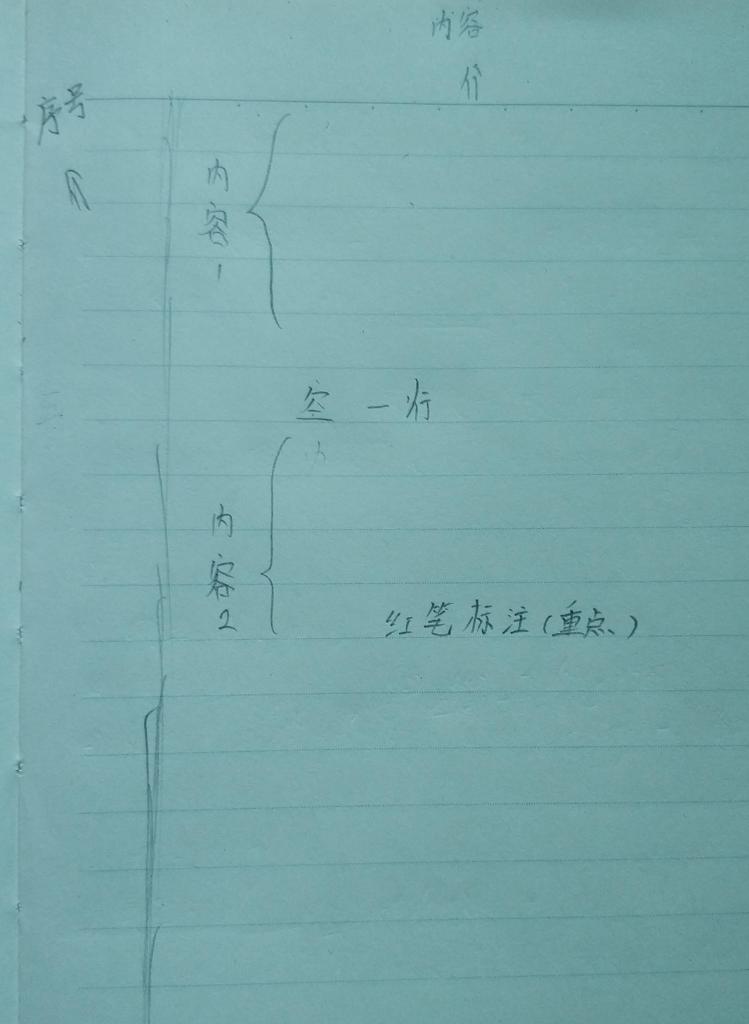 内容
序号
内容1
空一行
内容2
红笔标注(重点、)